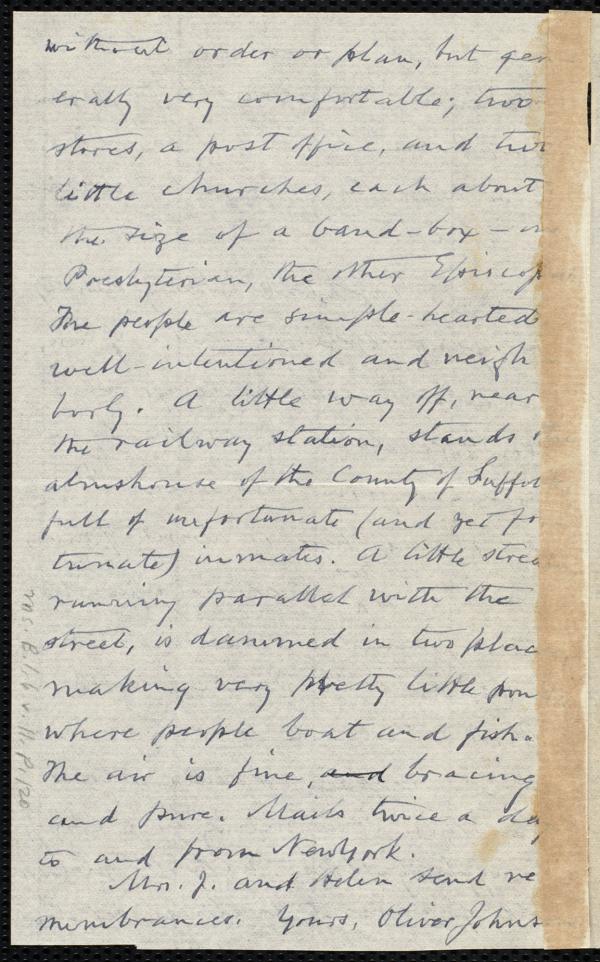 without order or plan, but gen
erally very comfortable; two
stores, a post office, and two
little churches, each about
the size of a band-box—one
Presbyterian, the other Episcop
The people are simple-hearted
well-intentioned and neigh
borly. A little way off, near
the railway station, stands
almshouse of the County of Suffol
full of unfortunate (and yet fo
tunate) inmates. A little strea
running parallel with the
street, is dammed in two plac
making very pretty little pon
where people boat and fish.
The air is fine, and bracing
and pure. Mails twice a day
to and from New York.
Mrs. J. and Helen send re
membrances. Yours, Oliver Johns